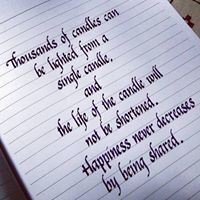 Thousands of candles can
be lighted from a
single candle,
and
the life of the candle will
not be shortened.
Happiness never decreases
by being shared.